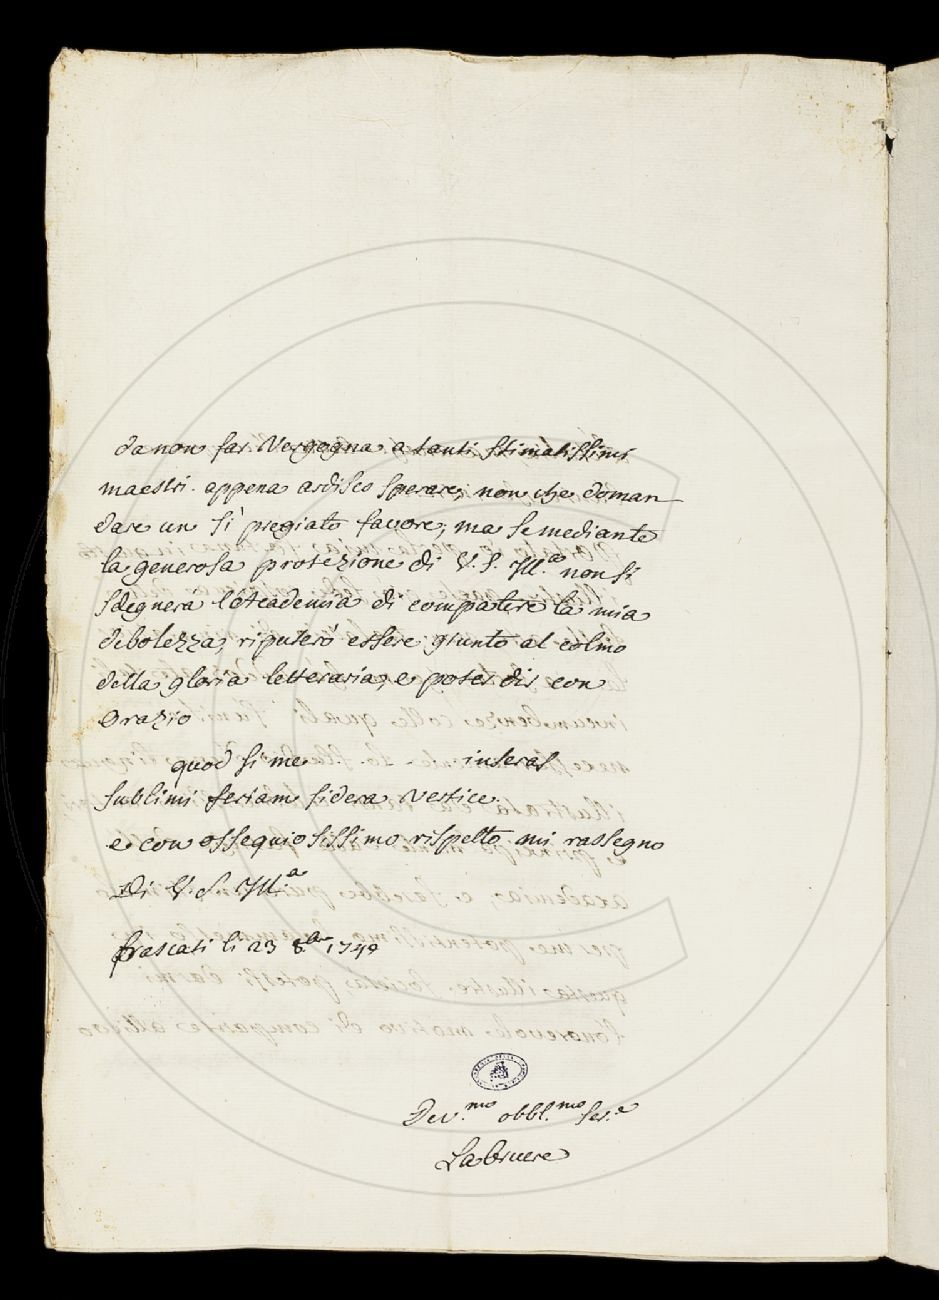 da non far Vergogna a tanti stimatissimi
maestri. appena ardisco sperare, non che doman
dare un sì pregiato favore; ma se mediante
la generosa protezione di V. S. Ill.a non si
sdegnerà l'Accademia di compatire la mia
debolezza, riputerò essere giunto al colmo
della gloria letteraria, e poter dir con
Orazio
quod si me inseras
sublimi feriam sidera vertice.
e con ossequiosissimo rispetto mi rassegno
Di V. S. Ill.a
frascati li 23 8bre
Dev.mo obbl.mo ser.e
La bruere